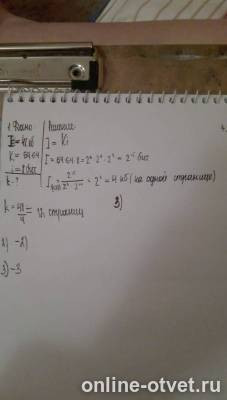 1. Дано | Решение
I = 48 кб | I = Ki
K = 64·64 | I = 64·64·8 = 2⁶·2⁶·2³ = 2¹⁵ бит
i = 8 бит
k - ?
= 2² = 4 кб (на одной странице)
k = 48/4 = 12 страниц
3)
2) -2)
3) -3
online-otvet.ru